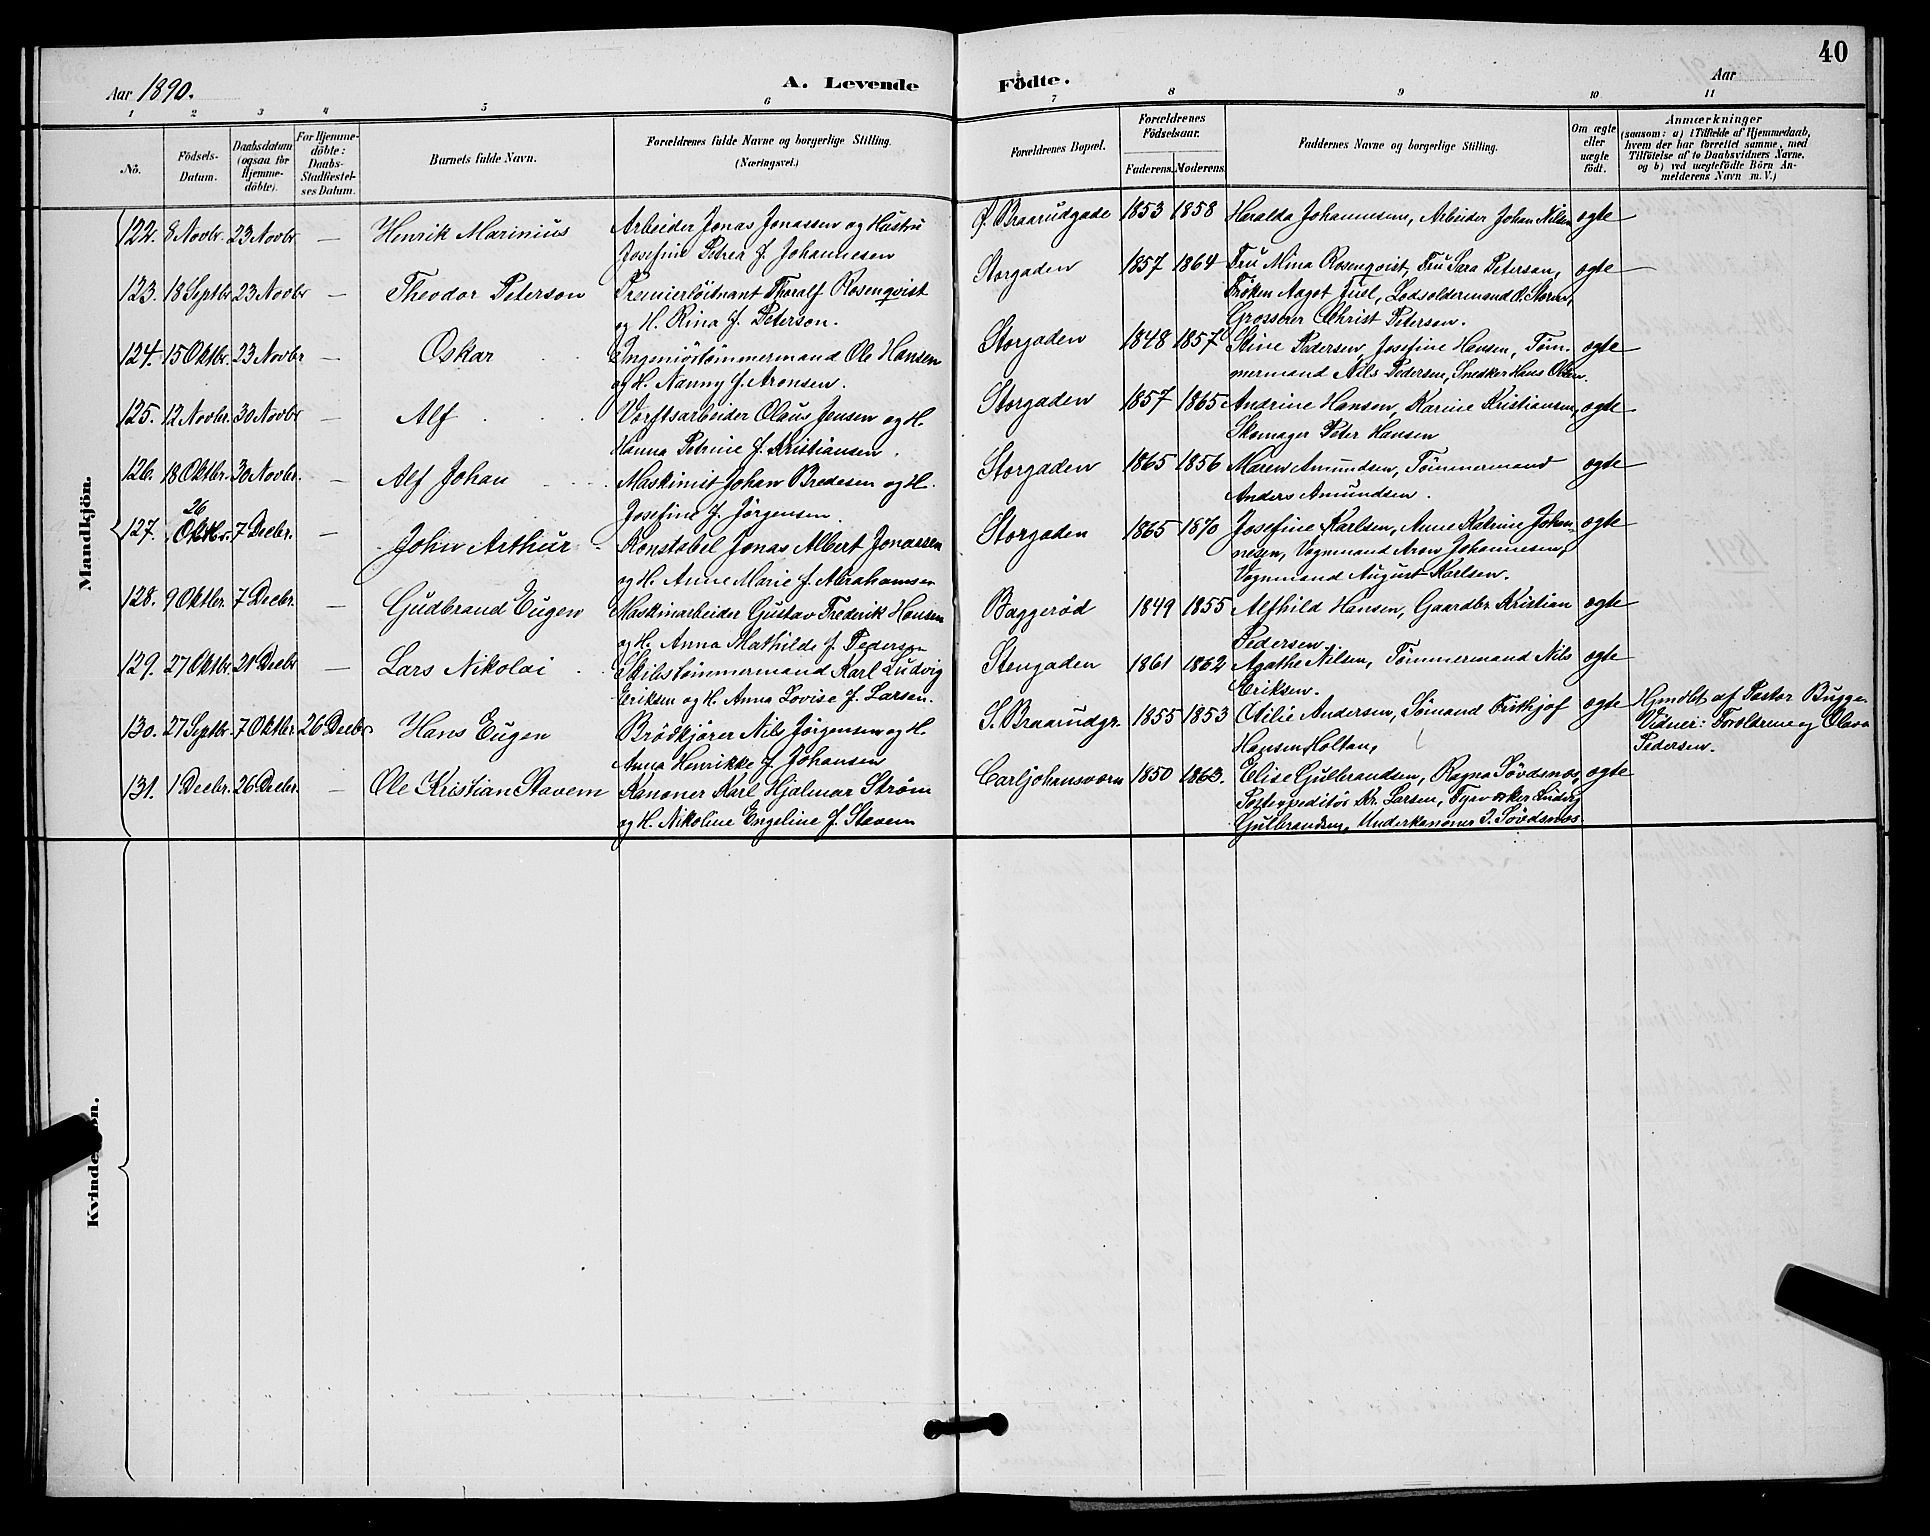 40
Aar 1890.
A. Levende Fødte.
Aar
1 2 3 4 5 6 7 8 9 10 11
No.
Födsels-Datum.
Daabsdatum (ogsaa for Hjemme-döbte).
For Hjemme-döbte: Daabs-Stadfæstel-ses Datum.
Barnets fulde Navn.
Forældrenes fulde Navne og borgerlige Stilling. (Næringsvei.)
Forældrenes Bopæl.
Forældrenes Födselsaar.
Faderens. Moderens.
Faddernes Navne og borgerlige Stilling.
Om ægte eller uægte födt.
Anmærkninger
(saasom: a) i Tilfælde af Hjemmedaab,
hvem der har forrettet samme, med
Tilföielse af to Daabsvidners Navne,
og b) ved uægtefödte Börn An-
melderens Navn m. V.)
Mandkjön.
122. 8 Novbr. 23 Novbr — Henrik Marinius Arbeider Jonas Jonassen og Hustru Ø. Braarudgade 1853 1858 Heralda Johannesen, Arbeider Johan Nilsen ægte
Josefine Petrea f. Johannesen
123. 18 Septbr 23 Novbr — Theodor Peterson Premierløitnant Thoralf Rosenqvist Storgaden 1857 1864 Fru Mina Rosenqvist, Fru Sara Peterson, ægte
og H. Rina f. Peterson. Frøken Aagot Juel, Lodsoldermand O. Storm,
Grosserer Christ Petersen.
124. 15 Oktbr. 23 Novbr — Oskar Ingeniörtømmermand Ole Hansen Storgaden 1848 1857 Stine Pedersen, Josefine Hansen, Tøm- ægte
og H. Nanny f. Aronsen. mermand Nils Pedersen, Snedker Hans Olsen.
125. 12 Novbr. 30 Novbr — Alf Verftsarbeider Olaus Jensen og H. Storgaden 1857 1865 Andrine Hansen, Karine Kristiansen, ægte
Hanna Petrine f. Kristiansen. Skomager Peter Hansen
126. 18 Oktbr. 30 Novbr. — Alf Johan Maskinist Johan Bredesen og H. Storgaden 1865 1856 Maren Amundsen, Tømmermand ægte
Josefine f. Jörgensen Anders Amundsen.
127. 26 Oktbr. 7 Decbr. — John Arthur Konstabel Jonas Albert Jonassen Storgaden 1865 1870 Josefine Karlsen, Anne Katrine Johan- ægte
og H. Anne Marie f. Abrahamsen nesen, Vognmand Aron Johannesen,
Vognmand August Karlsen.
128. 9 Oktbr. 7 Decbr. — Gudbrand Eugen Maskinarbeider Gustav Frederik Hansen Baggerød 1849 1855 Alfhild Hansen, Gaardbr. Kristian ægte
og H. Anna Mathilde f. Pedersen Pedersen
129. 27 Oktbr. 21 Decbr — Lars Nikolai Skibstømmermand Karl Ludvig Stengaden 1861 1862 Agathe Nilsen, Tømmermand Nils ægte
Eriksen og H. Anna Lovise f. Larsen. Eriksen.
130. 27 Septbr. 7 Oktbr 26 Decbr Hans Eugen Brödkjører Nils Jörgensen og H. S. Braarudgr. 1855 1853 Otilie Andersen, Sømand Frithjof ægte Hjmdbt af Pastor Bugge.
Anna Henrikke f. Johansen Hansen Holtan, Vidner: Forældrene og Olava
Pedersen.
131. 1 Decbr. 26 Decbr. — Ole Kristian Stavem Kanoner Karl Hjalmar Strøm Carljohansværn 1850 1863. Elise Gulbrandsen, Ragna Søvdsnes, ægte
og H. Nikoline Engeline f. Stavem Postexpeditør Kr. Larsen, Fyrvorker Ludvig
Gulbrandsen, Underkanoner J. Søvdsnes
Kvindekjön.